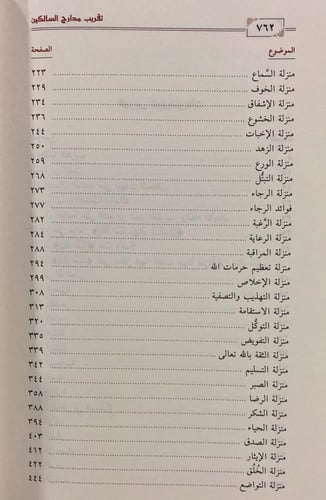 ٧٦٢ تقريب مدارج السالكين
الموضوع الصفحة
منزلة السَّماع ٢٢٣
منزلة الخوف ٢٢٩
منزلة الإشفاق ٢٣٤
منزلة الخشوع ٢٣٦
منزلة الإخبات ٢٤٤
منزلة الزهد ٢٥٠
منزلة الورع ٢٥٩
منزلة التبتُّل ٢٦٨
منزلة الرجاء ٢٧٣
فوائد الرجاء ٢٧٧
منزلة الرَّغبة ٢٨٢
منزلة الرعاية ٢٨٤
منزلة المراقبة ٢٨٨
منزلة تعظيم حرمات الله ٢٩٤
منزلة الإخلاص ٢٩٩
منزلة التهذيب والتصفية ٣٠٨
منزلة الاستقامة ٣١٣
منزلة التوكُّل ٣٢٠
منزلة التفويض ٣٣٥
منزلة الثقة بالله تعالى ٣٣٩
منزلة التسليم ٣٤٢
منزلة الصبر ٣٤٤
منزلة الرضا ٣٥٨
منزلة الشكر ٣٨٨
منزلة الحياء ٣٩٤
منزلة الصدق ٤٠٣
منزلة الإيثار ٤١٢
منزلة الخُلُق ٤٢٢
منزلة التواضع ٤٤٤